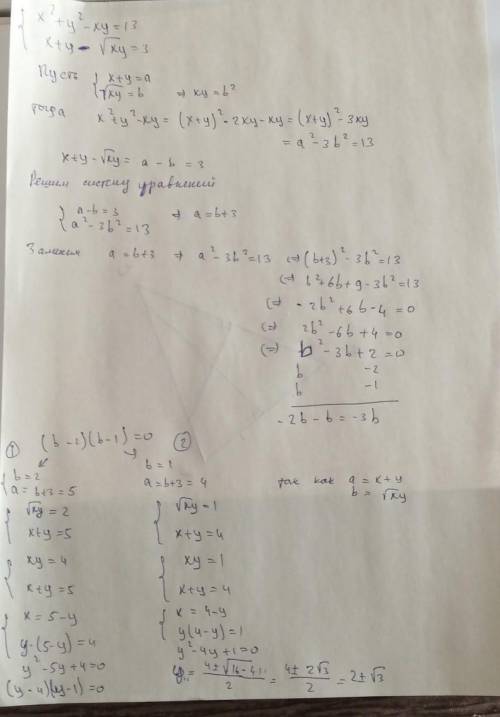 { x² + y² - xy = 13
x + y - √xy = 3
Пусть { x + y = a
√xy = b ⇒ xy = b²
тогда x² + y² - xy = (x+y)² - 2xy - xy = (x+y)² - 3xy
= a² - 3b² = 13
x + y - √xy = a - b = 3
Решим систему уравнений
{ a - b = 3 ⇒ a = b + 3
a² - 3b² = 13
Заменим a = b + 3 ⇒ a² - 3b² = 13 (=) (b+3)² - 3b² = 13
(=) b² + 6b + 9 - 3b² = 13
(=) - 2b² + 6b - 4 = 0
(=) 2b² - 6b + 4 = 0
(=) b² - 3b + 2 = 0
b -2
b -1
-2b - b = -3b
① (b - 2)(b - 1) = 0 ②
{ b = 2
a = b + 3 = 5
{ √xy = 2
x + y = 5
{ xy = 4
x + y = 5
{ x = 5 - y
y · (5 - y) = 4
y² - 5y + 4 = 0
(y - 4)(y - 1) = 0
b = 1
a = b + 3 = 4
{ √xy = 1
x + y = 4
{ xy = 1
x + y = 4
{ x = 4 - y
y(4 - y) = 1
y² - 4y + 1 = 0
= 4 ± √16 - 4 / 2 = 4 ± 2√3 / 2 = 2 ± √3
так как a = x + y
b = √xy